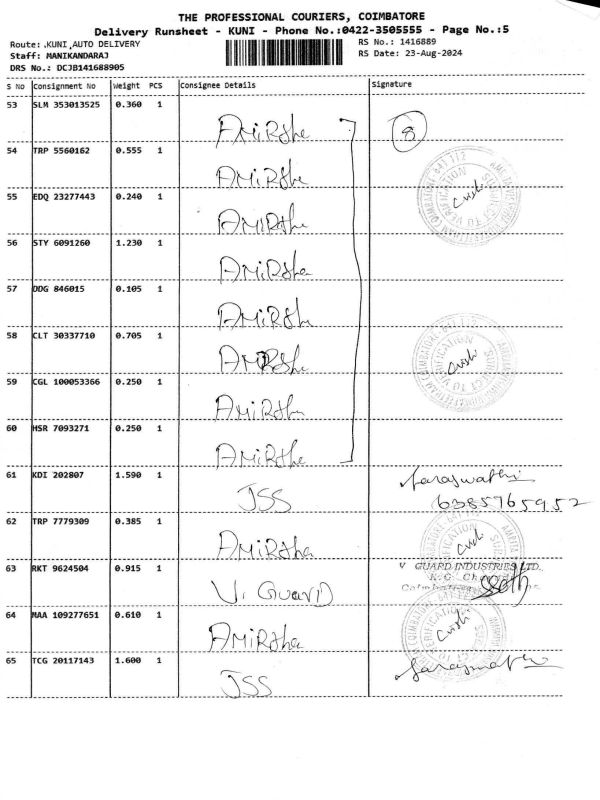 THE PROFESSIONAL COURIERS, COIMBATORE
Delivery Runsheet - KUNI - Phone No.:0422-3505555 - Page No.:5
Route: .KUNI,AUTO DELIVERY RS No.: 1416889
Staff: MANIKANDARAJ RS Date: 23-Aug-2024
DRS No.: DCJB141688905
S No Consignment No Weight PCS Consignee Details Signature
53 SLM 353013525 0.360 1 AMiRthe 8
54 TRP 5560162 0.555 1 AMiRthe
55 EDQ 23277443 0.240 1 AMiRthe
56 STY 6091260 1.230 1 AMiRtha
57 DDG 846015 0.105 1 AMiRth
58 CLT 30337710 0.705 1 AMiRthe
59 CGL 100053366 0.250 1 AMiRtha
60 HSR 7093271 0.250 1 AMiRthe
61 KDI 202807 1.590 1 JSS Saraswathi
6385765952
62 TRP 7779309 0.385 1 AMiRtha
63 RKT 9624504 0.915 1 V. GUARD V GUARD INDUSTRIES LTD.
64 MAA 109277651 0.610 1 AMiRtha
65 TCG 20117143 1.600 1 JSS Saraswathi